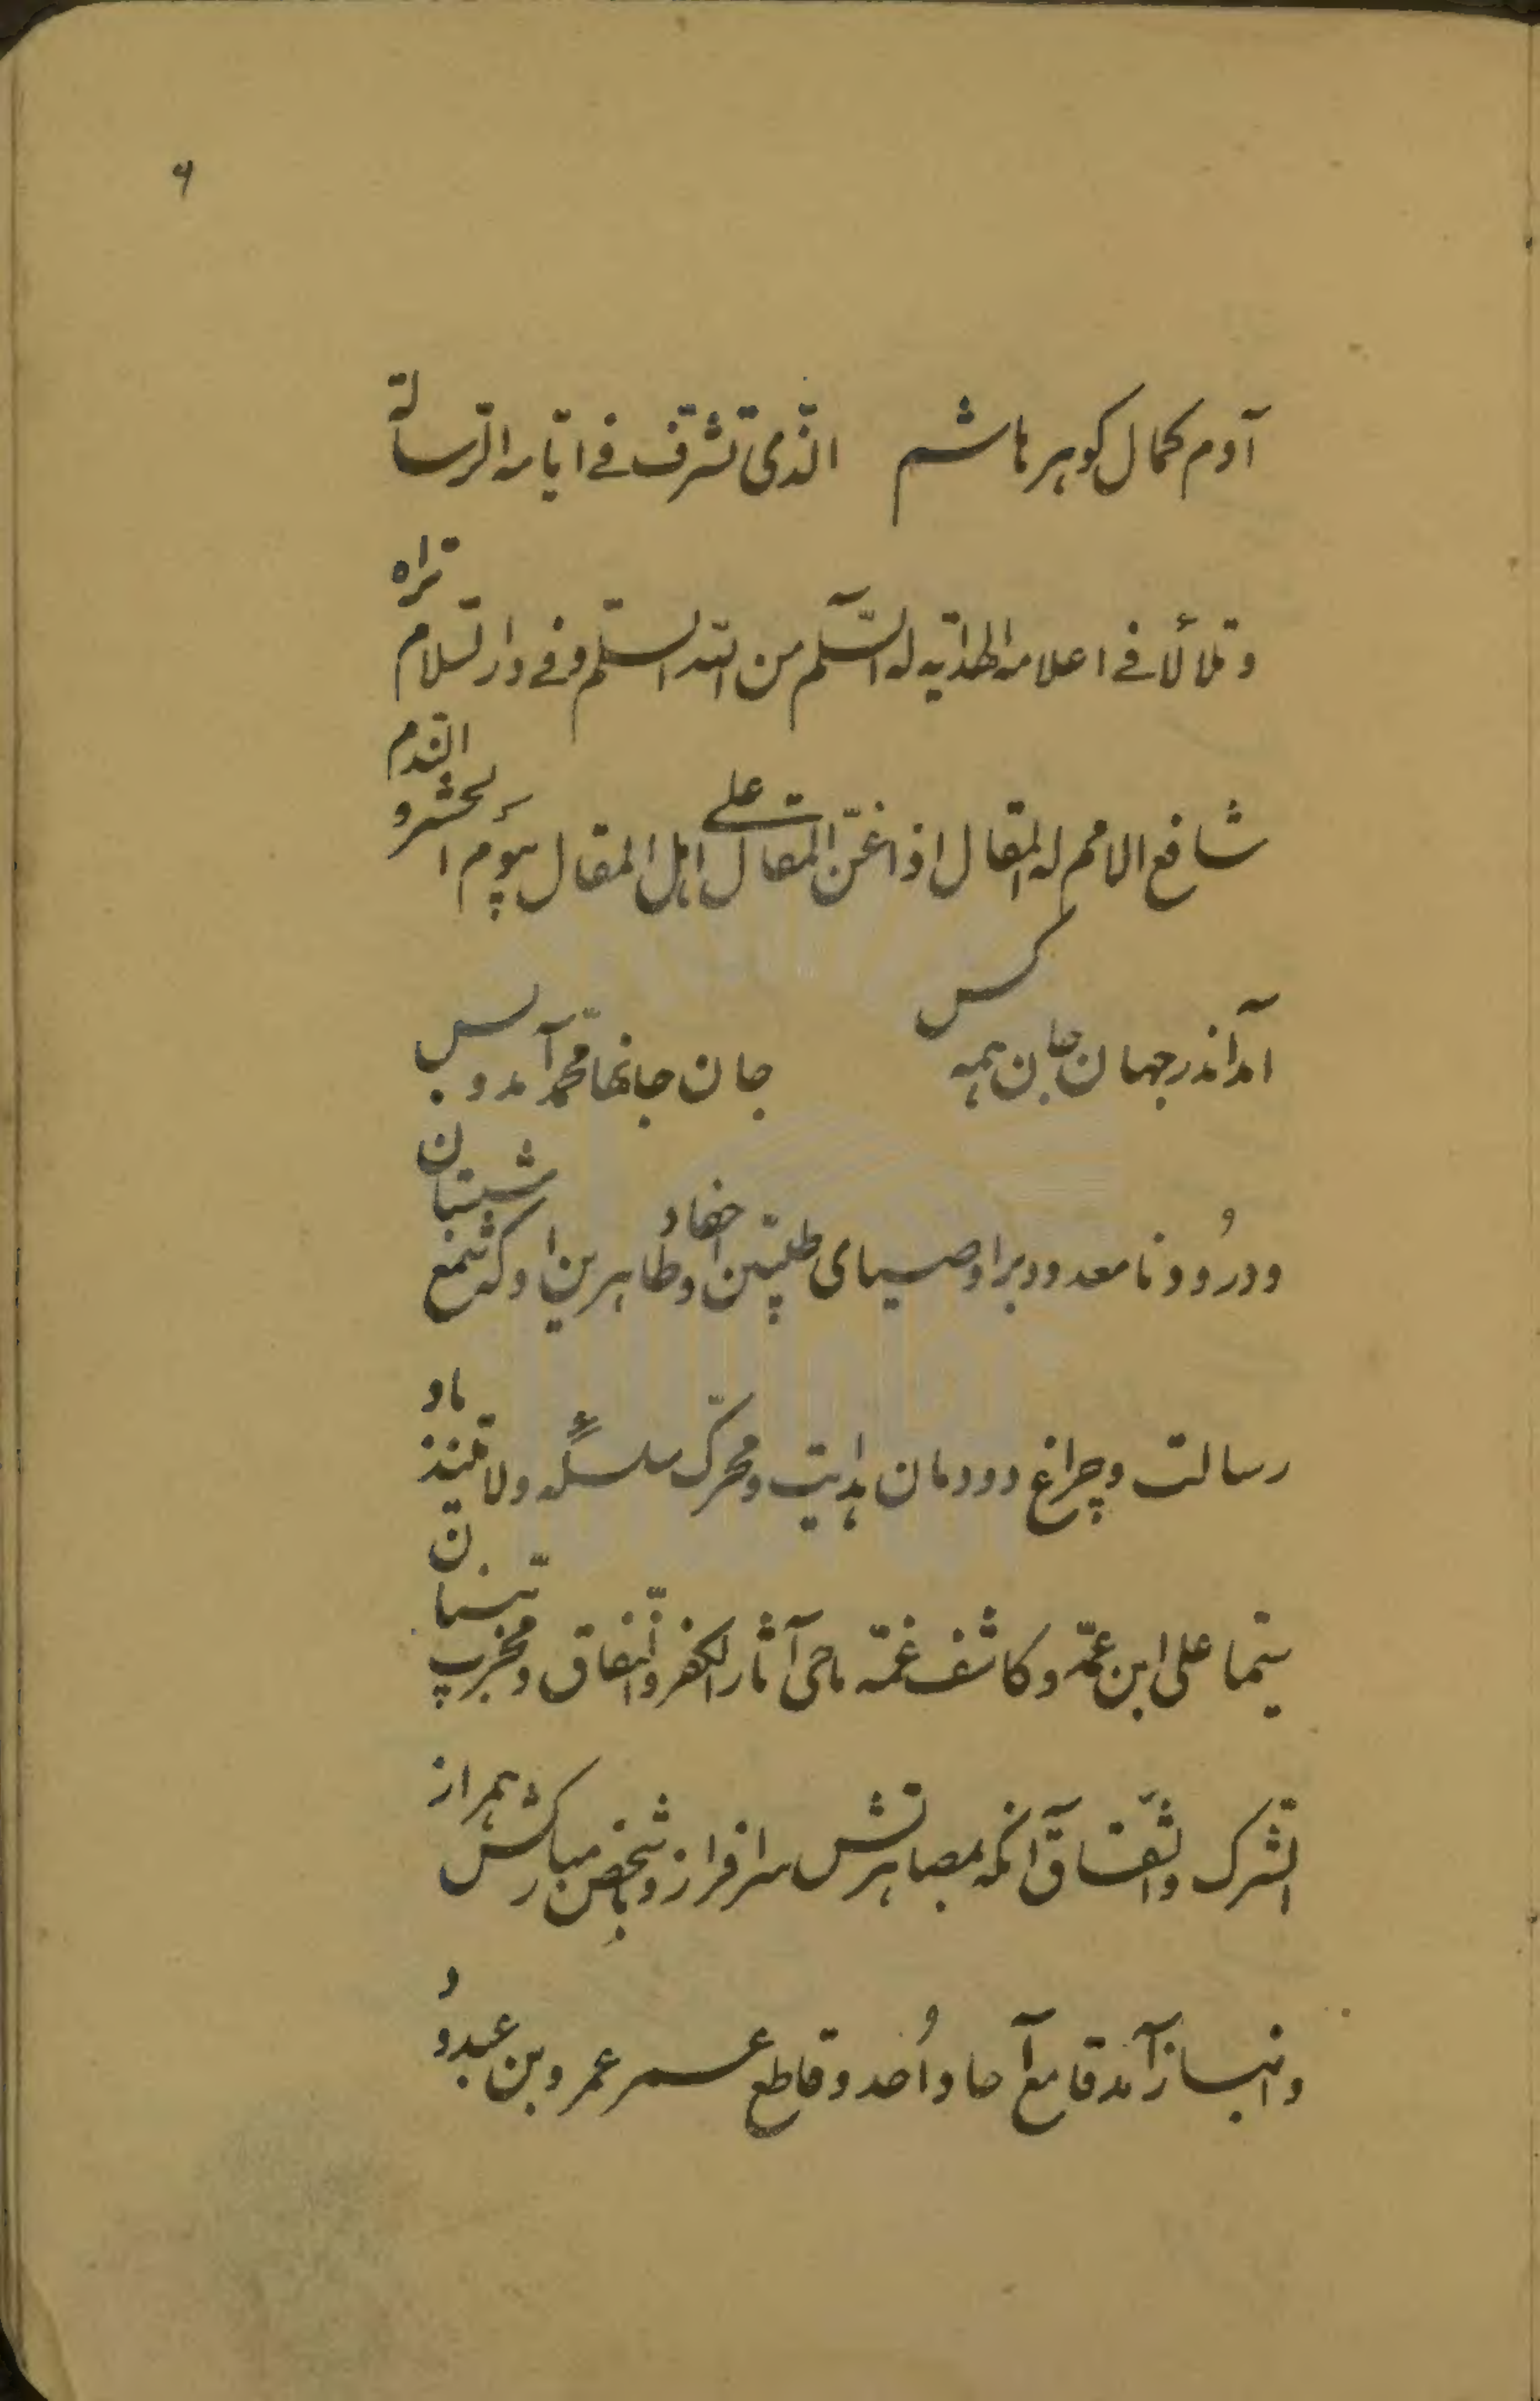 ۶
آدم کمال گوهر هاشم الّذی تشرّف فے ایّامه الرّسالة
و تلألأ فے اعلامه الهدایه له السّلم من اللّه السّلم و فے دار السّلام تراه
شافع الامم له المقال اذا عنّ المقال علی اهل المقال بیوم الحشر و النّدم
آمد اندر جهان جان همه کس جان جانها محمّد آمد و بس
و درُود نا معدود بر اوصیای طیّبین و احفاد طاهرین او که شمع شبستان
رسالت و چراغ دودمان هدایت و محرّک سلسلهٔ ولایتند باد
سیّما علی ابن عمّه و کاشف غمّه ماحی آثار الکفر و النّفاق و مخرّب بنیان
الشّرک و الشّقاق آنکه بمصاهرتش سرافراز و بشخص مبارکش همراز
و انباز آمد قامع آحاد اُحد و قاطع عمر عمرو بن عبدودُ